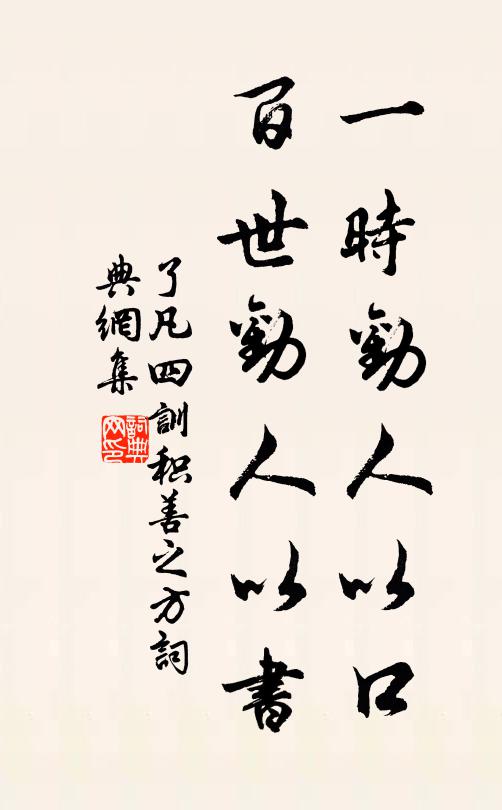 一時勸人以口
百世勸人以書
了凡四訓积善之方詞
典網集
詞典
网印